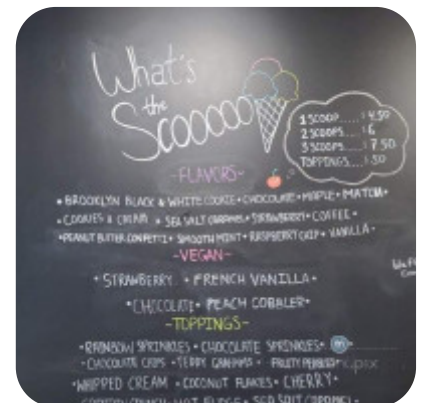 What's
the
Scooooo
1 SCOOP..... $4.50
2 SCOOPS.... $6
3 SCOOPS.... $7.50
TOPPINGS.... $.50
-FLAVORS-
• BROOKLYN BLACK & WHITE COOKIE • CHOCOLATE • MAPLE • MATCHA •
• COOKIES & CREAM • SEA SALT CARAMEL • STRAWBERRY • COFFEE •
• PEANUT BUTTER CONFETTI • SMOOTH MINT • RASPBERRY CHIP • VANILLA •
-VEGAN-
• STRAWBERRY • FRENCH VANILLA •
• CHOCOLATE • PEACH COBBLER •
-TOPPINGS-
• RAINBOW SPRINKLES • CHOCOLATE SPRINKLES •
• CHOCOLATE CHIPS • TEDDY GRAHAMS • FRUITY PEBBLES •
• WHIPPED CREAM • COCONUT FLAKES • CHERRY •
CRUNCH • HOT FUDGE • SEA SALT CARAMEL •